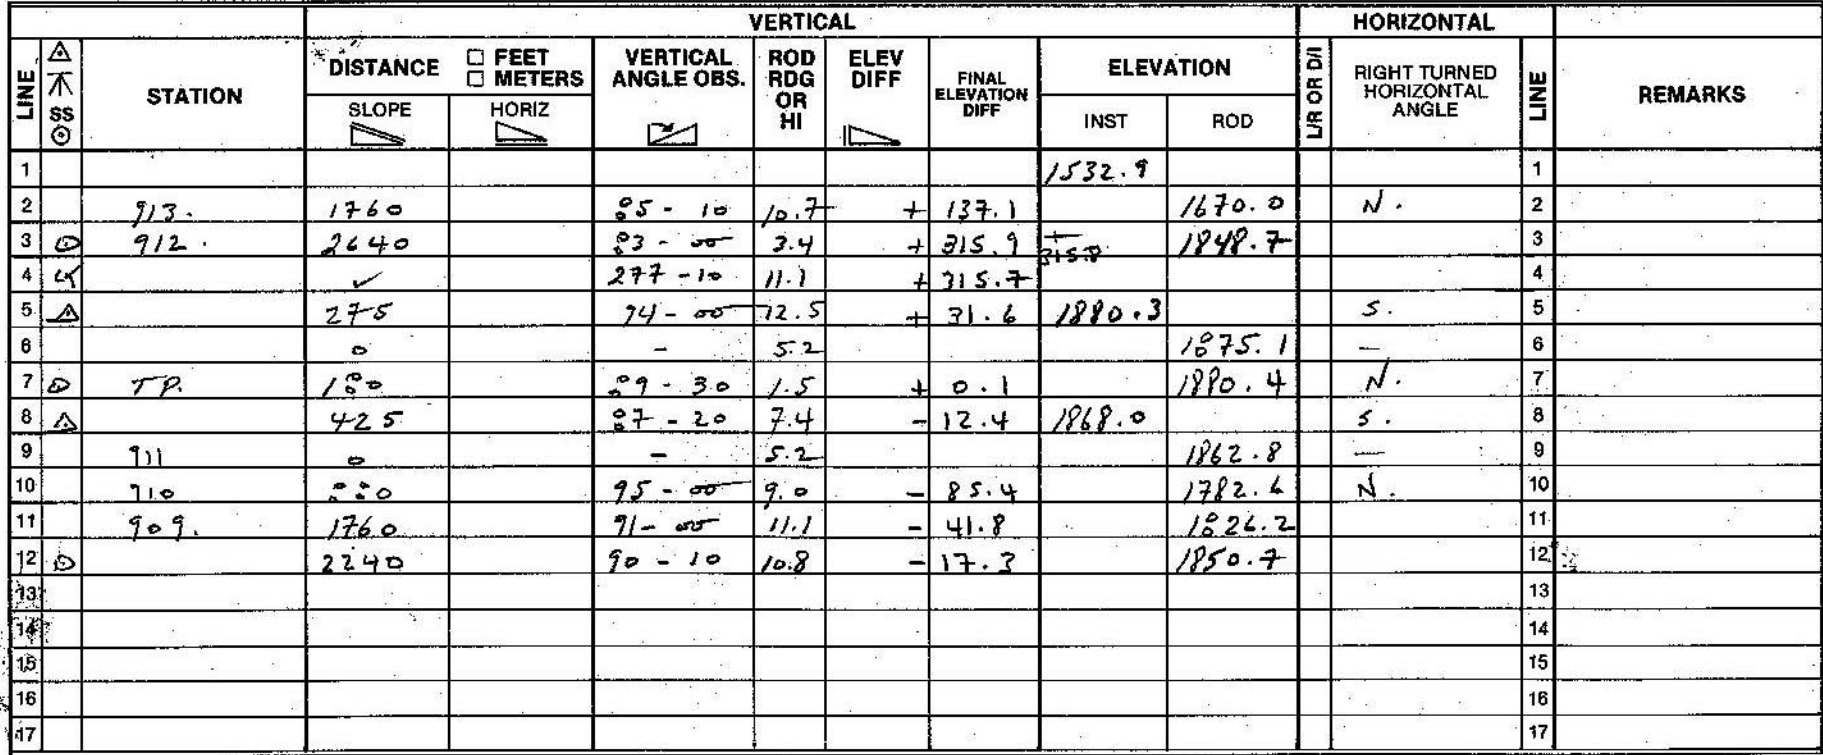 VERTICAL HORIZONTAL
LINE SS STATION DISTANCE □ FEET □ METERS VERTICAL ANGLE OBS. ROD RDG OR HI ELEV DIFF FINAL ELEVATION DIFF ELEVATION L/R OR D/I RIGHT TURNED HORIZONTAL ANGLE LINE REMARKS
SLOPE HORIZ INST ROD
1 1532.9 1
2 913. 1760 85 - 10 10.7 + 137.1 1670.0 N. 2
3 912. 2640 83 - 00 3.4 + 315.9 + 315.8 1848.7 3
4 ✓ 277 - 10 11.1 + 315.7 4
5 275 94 - 00 12.5 + 31.6 1880.3 S. 5
6 0 - 5.2 1875.1 — 6
7 T.P. 180 89 - 30 1.5 + 0.1 1880.4 N. 7
8 425 87 - 20 7.4 - 12.4 1868.0 S. 8
9 911 0 - 5.2 1862.8 — 9
10 910 880 95 - 00 9.0 - 85.4 1782.6 N. 10
11 909. 1760 91 - 00 11.1 - 41.8 1826.2 11
12 2240 90 - 10 10.8 - 17.3 1850.7 12
13 13
14 14
15 15
16 16
17 17